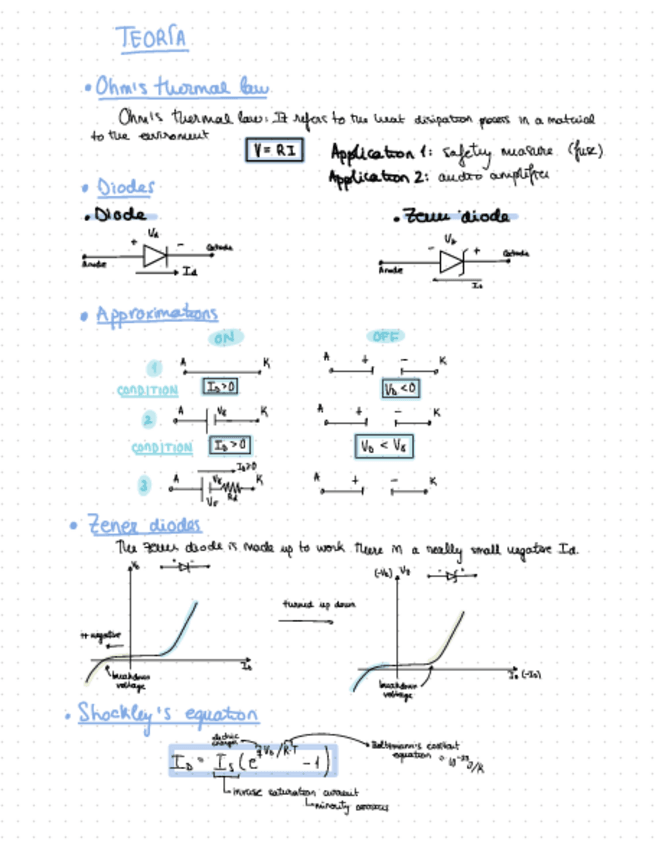 TEORÍA
• Ohm's thermal law
Ohm's thermal law: It refers to the heat disipation process in a material
to the enviroment
V = RI
Application 1: safety measure (fuse)
Application 2: audio amplifier
• Diodes
• Diode
• Zener diode
+ Vd -
Anode
Catode
Id
- +
Anode
Catode
• Approximations
ON
OFF
1
A K
A + - K
CONDITION
ID>0
VD<0
2
A K
A + - K
CONDITION
ID>0
VD < Vγ
ID>0
3
A Vγ K
Rd
A + - K
• Zener diodes
The zener diode is made up to work there in a really small negative Id.
turned up down
negative
breakdown
voltage
breakdown
voltage
• Shockley's equation
electric
charge
ID = IS (e^qVD/K·T - 1)
Boltzmann's constant
equation
inverse saturation current
minority